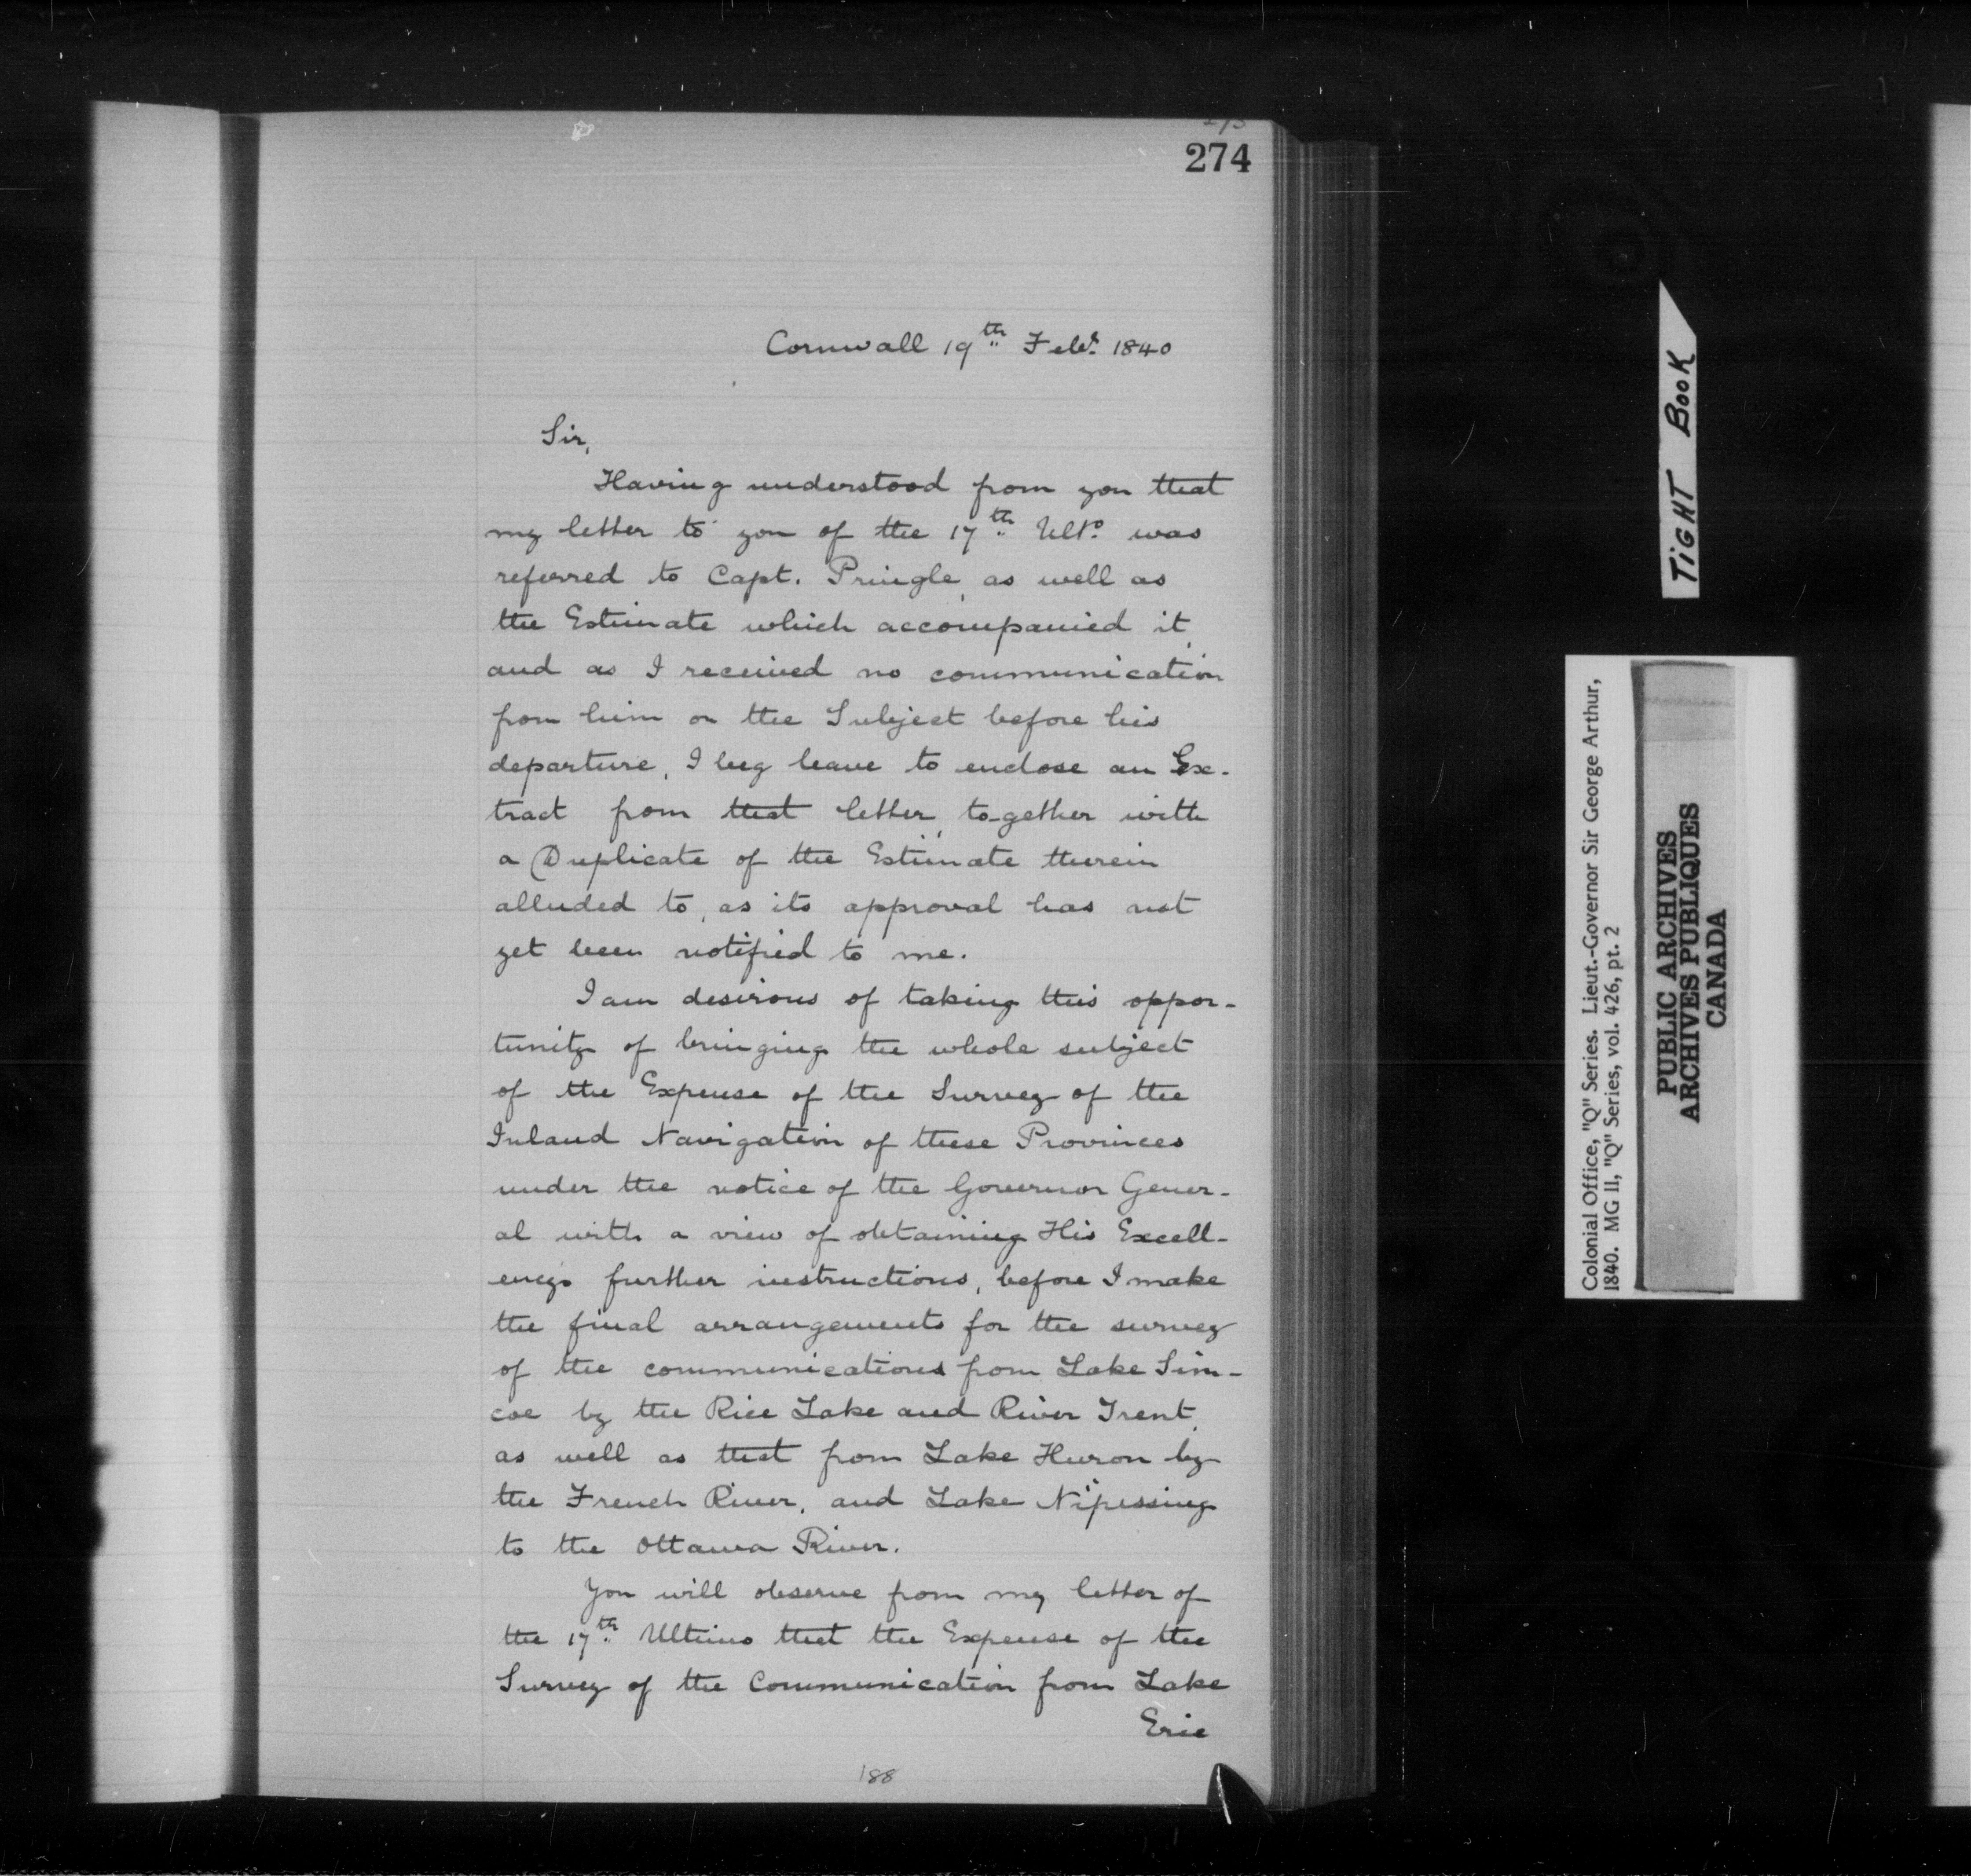 274
Cornwall 19th Feby. 1840
Sir,
Having understood from you that
my letter to you of the 17th Ulto. was
referred to Capt. Pringle, as well as
the Estimate which accompanied it,
and as I received no communication
from him on the Subject before his
departure, I beg leave to enclose an Ex-
tract from that letter, to-gether with
a Duplicate of the Estimate therein
alluded to, as its approval has not
yet been notified to me.
I am desirous of taking this oppor-
tunity of bringing the whole subject
of the Expense of the Survey of the
Inland Navigation of these Provinces
under the notice of the Governor Gener-
al with a view of obtaining His Excell-
ency's further instructions, before I make
the final arrangements for the survey
of the communications from Lake Sim-
coe by the Rice Lake and River Trent,
as well as that from Lake Huron by
the French River, and Lake Nipissing
to the Ottawa River.
You will observe from my letter of
the 17th Ultimo that the Expense of the
Survey of the Communication from Lake
Erie
188
TIGHT BOOK
Colonial Office, "Q" Series. Lieut.-Governor Sir George Arthur,
1840. MG 11, "Q" Series, vol. 426, pt. 2
PUBLIC ARCHIVES
ARCHIVES PUBLIQUES
CANADA